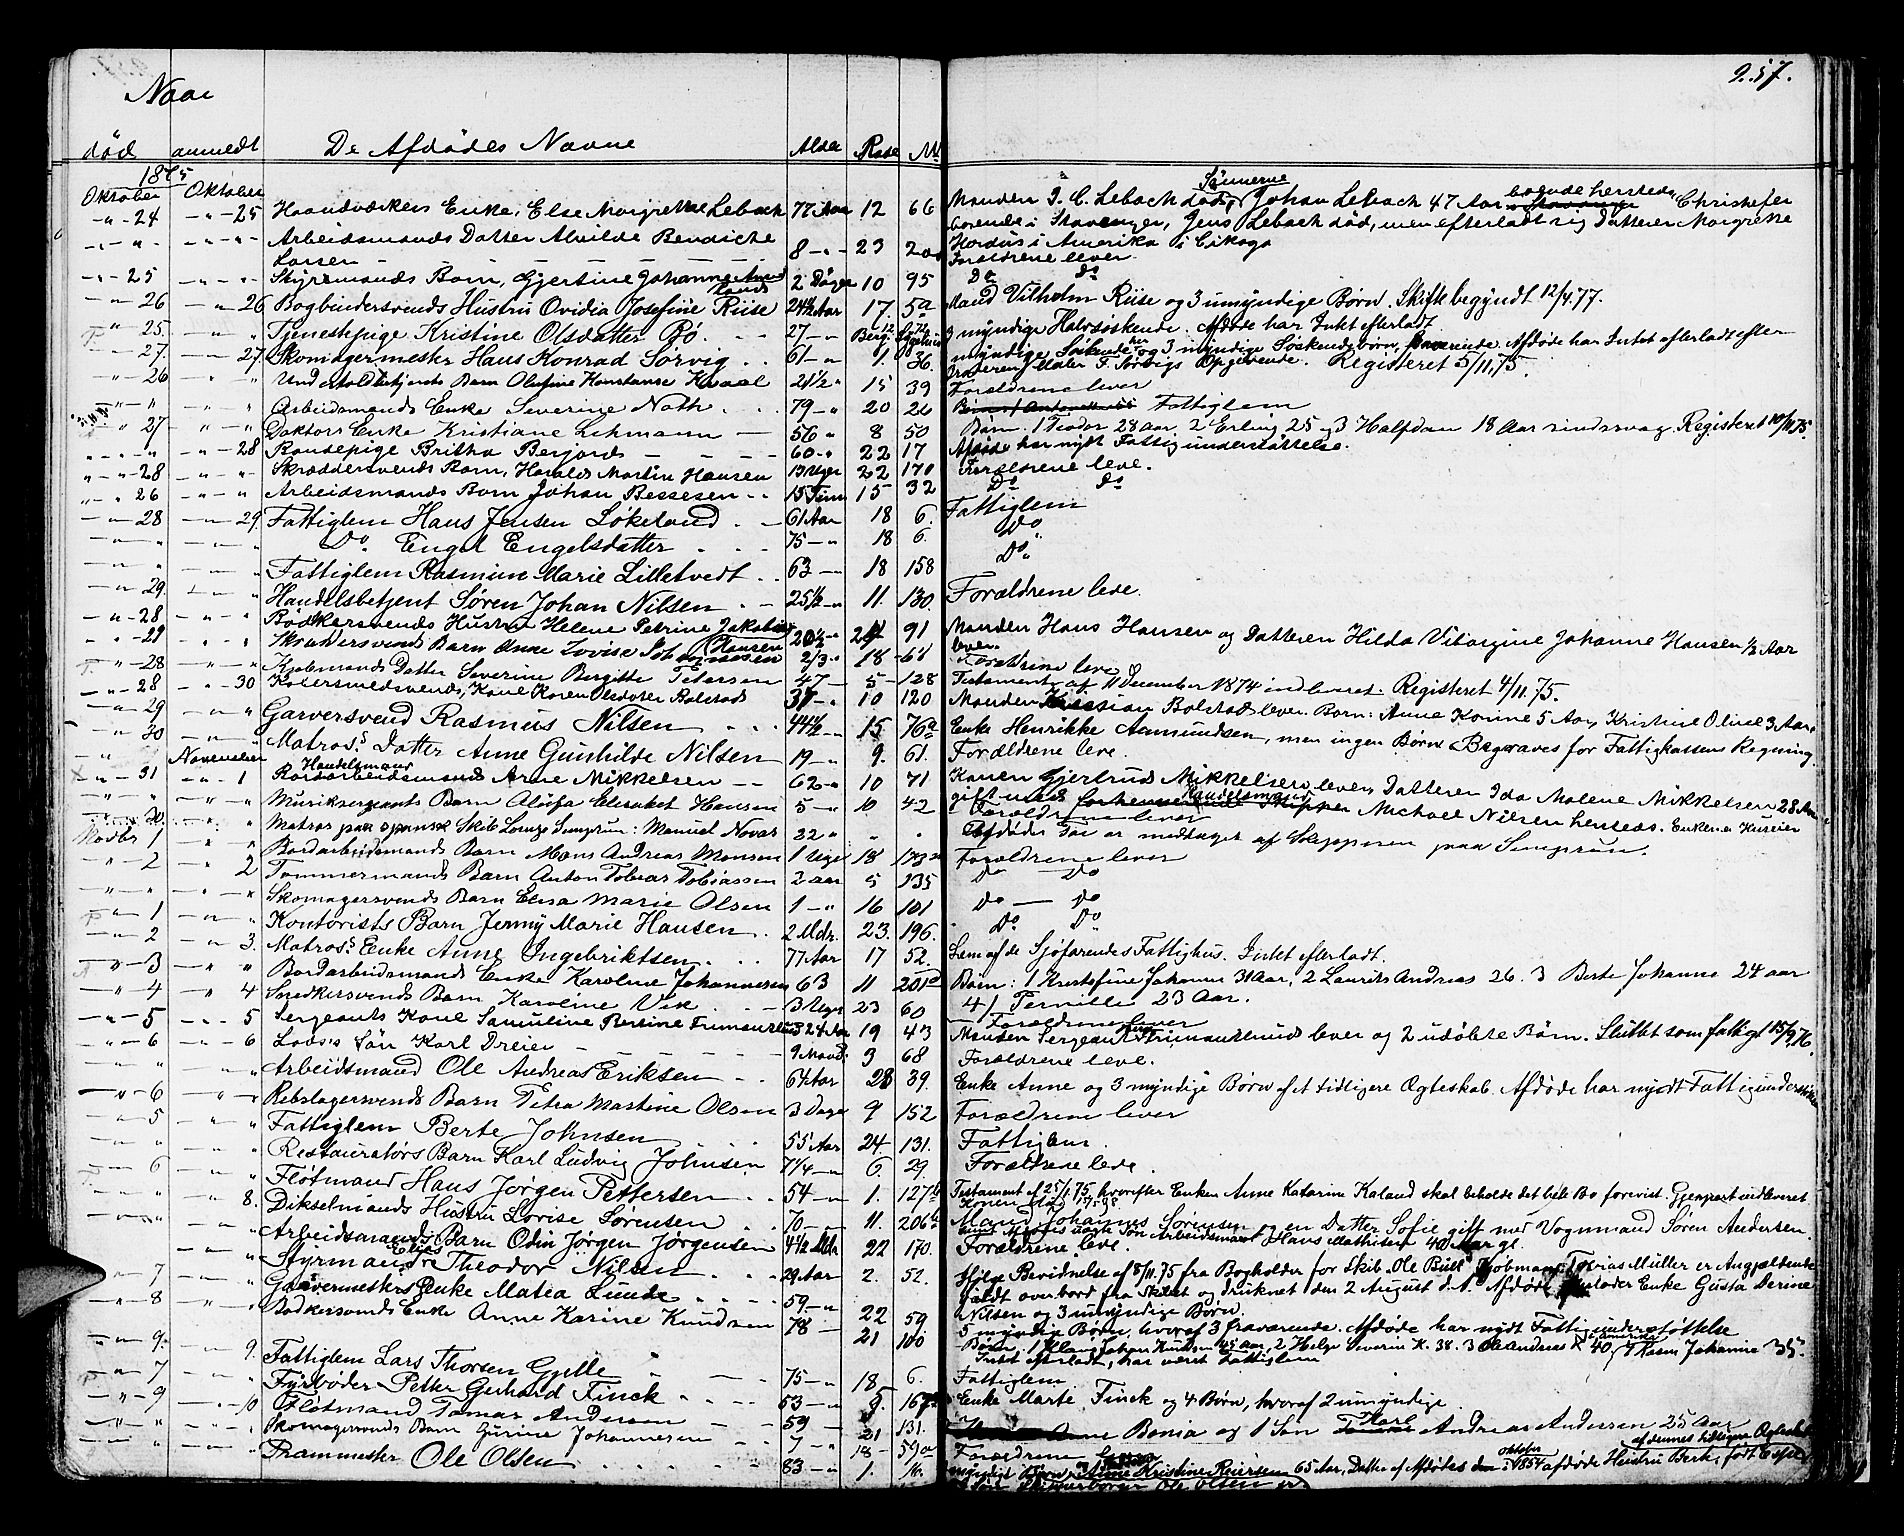 Naar
257.
død anmeldt De Afdødes Navne Alder Rode No
1875
Oktober Oktober
24 25 Haandværkers Enke, Else Margrethe Lebach 77 Aar 12 66 Manden J. C. Lebach død, Sønnerne Johan Lebach 47 Aar boende hersteds, Christofer
boende i Stavanger, Jens Lebach død, men efterladt sig Datteren Margrethe
Arbeidsmands Datter Alvilde Bendicte 8 23 Hordus i Amerika i Cikago
Larsen Forældrene lever
25 Styrmands Barn, Gjertine Johanne 2 Dage 10 95 Do Do
26 26 Bogbindersvends Hustru Ovidia Josefine Riise 24½ Aar 17. 5a Mand Vilhelm Riise og 3 umyndige Børn. Skifte begyndt 12/4.77.
25. Tjenestepige Kristine Olsdatter Bø. 27 myndige Halvsøskende. Afdøde har Intet efterladt
27. 27 Skomagermester Hans Konrad Sørvig 61 1. 36. myndige Søskende og 3 myndige Søskendebørn, fraværende. Afdøde har Intet efterladt efter
Broderen Maler F. Sørvigs Opgivende. Registeret 5/11.75.
26 Barn Olufine Konstanse Kvaal 2½ 15 39 Forældrene lever
Arbeidsmands Enke Severine Nath 79 20 Fattiglem
27 Doktors Enke Kristiane Lehmann 56 8 50 Børn: 1 Teodor 28 aar, 2 Erling 25 og 3 Halfdan 18 Aar sindssvag. Registeret 10/11.75.
28 Bondepige Britha Berfjord 60 22 17 Afdøde har nydt Fattigunderstøttelse.
28 Skræddersvends Barn, Harald Martin Hansen 13 Uger 22 170 Forældrene leve.
26 Arbeidsmands Barn Johan Bessesen 15 Tim 15 32 Do Do
28 29. Fattiglem Hans Jensen Løkeland 61 Aar 18 6. Fattiglem
Do. Engel Engelsdatter 75 18 6. Do
Fattiglem Rasmine Marie Lilletvedt 63 18 158 Do.
29. Handelsbetjent Søren Johan Nilsen 25½ 11. 130. Forældrene leve.
28 Bødkersvends Hustru Helene Petrine Jakobine Hansen 20½ 24 91 Manden Hans Hansen og Datteren Hilda Vitorgine Johanne Hansen ½ Aar
lever.
29 Skræddersvend Barn Anne Lovise 2/3 18 Forældrene leve
28 Kjøbmands Datter Severine Bergitte Petersen 47 5 128 Testament af 11 December 1874 indleveret. Registeret 4/11.75.
28 30 Kobbersmedsvends Kone Karen Olsdatter Bolstad 37 10 120 Manden Bolstad lever. Børn: Anne Konine 5 Aar, Kristine Oline 3 Aar.
29 Garversvend Rasmus Nilsen 44½ 15 76a Enke Henrikke Aamundsen, men ingen Børn. Begraves for Fattigkassens Regning
30 Matros's Datter Anne Gunhilde Nilsen 19 9. 61. Forældrene leve.
November
31 1 Handelsmand Arne Mikkelsen 62 10 71 Konen Gjertrud Mikkelsen lever, Datteren Ida Malene Mikkelsen 28 Aar
Musiksergeants Barn Elisabet Hansen 5 10 42 gift med Handelsmand Michael Nilsen hersteds.
Forældrene lever
30. Matros paa spansk Skib Manuel Novas 22 Afdødes Tøi er medtaget af Skipperen paa
Novbr 1 Bordarbeidsmands Barn Mons Andreas Monsen 1 Uge 18 Forældrene lever
2 2 Tømmermands Barn Anton Tobias Tobiassen 2 aar 5 135 Do Do
Skomagersvends Barn Elisa Marie Olsen 1 16 101 Do Do
1 Kontorists Barn Jenny Marie Hansen 2 Mdr. 23. 196. Do Do
2 3. Matros's Enke Anne Ingebriktsen 77 Aar 17 52. Lem af de Sjøfarendes Fattighus. Intet efterladt.
3 Bordarbeidsmand Enke Karoline Johannesen 63 11 201 Børn: 1 Kristofine Johanne 31 Aar, 2 Laurits Andreas 26. 3 Berte Johanne 24 aar
4/ Pernille 23 Aar.
4 4 Snedkersvends Barn Karoline Vik 3 Uger 23 60 Forældrene lever
5 5 Sergeants Kone Samuline Bertine 24 Aar 19 43 Manden Sergeant lever og 2 udøbte Børn. Sluttet som fattigt 15/9.76.
6 6 Lods's Søn Karl Dreier 9 Maaned 3 68 Forældrene leve.
Arbeidsmand Ole Andreas Eriksen 64 Aar 28 39. Enke Anne og 3 myndige Børn af et tidligere Ægteskab. Afdøde har nydt Fattigunderstøttelse
6 Rebslagersvends Barn Petra Martine Olsen 3 Dage 9 152 Forældrene lever
5 Fattiglem Berte Johnsen 55 Aar 24 131. Fattiglem.
Restauratørs Barn Karl Ludvig Johnsen 7¼ 6. 29. Forældrene leve.
6 Fløtmand Hans Jørgen Pettersen 54 1. 127 Testament af 25/1.75, hvorefter Enken Anne Katarine Kaland skal beholde det hele Bo forevist. Gjenpart indleveret
8. Dikselmands Hustru Lovise Sørensen 70 11. 206 Mand Johannes Sørensen og en Datter Sofie gift med Vognmand Søren Andersen
Arbeidsmands Barn Odin Jørgen Jørgensen 4½ Mdr 22 170. Forældrene leve. Arbeidsmand Hans Mathisen 40 Aar gl.
7 Styrmand Elias Theodor Nilsen 29 Aar 2. 52. Ifølge Bevidnelse af 8/11.75 fra Bogholder for Skib. Ole Bull Kjøbmand Tobias Müller er Angjældende
faldt overbord fra Skibet og druknet den 2 August d. A. Afdøde efterlader Enke Gusta Serine
Nilsen og 3 umyndige Børn.
8 Garvermesters Enke Matia Lunde 59 22 59 5 myndige Børn, hvoraf 3 fraværende. Afdøde har nydt Fattigunderstøttelse
Bødkersvends Enke Anne Karine Knudsen 78 21 100 Børn: 1 Klaus Johan Knudsen 45 aar, 2 Helge Severin K. 38. 3 Ole Andreas K 40 i Amerika, 4 Rasm. Johanne 35.
Intet efterladt, har været Fattiglem
9. 9. Fattiglem Lars Thorsen Gjelle 75 18 6. Fattiglem
7 Fyrbøder Petter Gerhard Finck 53 8. 167 Enke Marte Finck og 4 Børn, hvoraf 2 umyndige.
9 10 Fløtmand Tomas Andersen 59 21 131. Benia og 1 Søn Karl Andreas Andersen 25 Aar
Skomagersvends Barn Gurine Johannesen 7 18 59a Forældrene leve af dennes tidligere Ægteskab
Prammester Ole Olsen 83 1. 16. myndigt Barn: Anne Kristine Reiersen 65 Aar, Datter af Afdødes i oktober 1854 afdøde Hustru Berte, født Espe